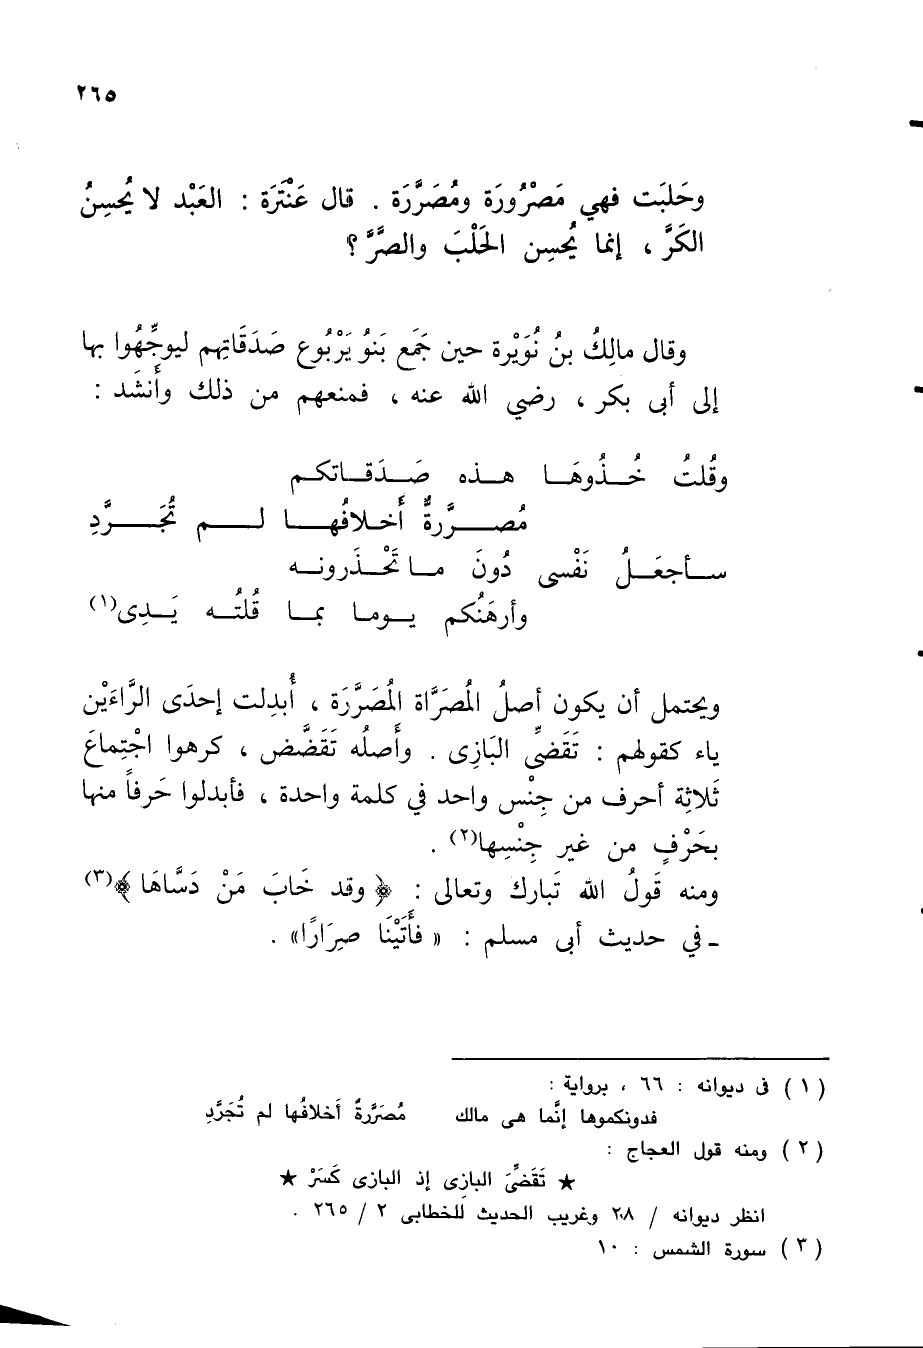 ٢٦٥
وحَلبَت فهي مَصْرُورَة ومُصَرَّرَة . قال عَنْتَرَة : العَبْد لا يُحسِنُ
الكَرَّ ، إنما يُحسِن الحَلْبَ والصَّرَّ ؟
وقال مالِكُ بنُ نُوَيْرة حين جَمَع بَنُو يَرْبُوع صَدَقَاتِهم ليوجِّهُوا بها
إلى أبى بكر ، رضي الله عنه ، فمنعهم من ذلك وأَنشَد :
وقُلتُ خُـــذُوهَـــا هـــذه صَـــدَقـــاتكـــم
مُصـــــرَّرةٌ أَخـلافُهـــــا لـــــم تُجَـــــرَّدِ
ســـأجعَـــلُ نَفْسى دُونَ مـــا تَحْـــذَرونـــه
وأرهَنُكم يـــومـــا بمـــا قُلتُـــه يَـــدِى(١)
ويحتمل أن يكون أصلُ المُصَرَّاة المُصَرَّرَة ، أُبدِلت إحدَى الرَّاءَيْن
ياء كقولهم : تَقَضِّىَ البَازِى . وأَصلُه تَقَضَّض ، كرهوا اجْتِماعَ
ثَلاثِة أحرف من جِنْس واحد في كلمة واحدة ، فأبدلوا حَرفاً منها
بحَرْفٍ من غير جِنْسِها(٢) .
ومنه قولُ الله تَبارك وتعالى : ﴿ وقد خَابَ مَنْ دَسَّاهَا ﴾(٣)
ـ في حديث أبى مسلم : « فأَتَيْنَا صِرَارًا» .
( ١ ) فى ديوانه : ٦٦ ، برواية :
فدونكموها إنَّما هى مالك مُصَرَّرةٌ أَخلافُها لم تُجَرَّدِ
( ٢ ) ومنه قول العجاج :
★ تَقَضِّىَ البازى إذ البازى كَسَرْ ★
انظر ديوانه / ٢٠٨ وغريب الحديث للخطابى ٢ / ٢٦٥ .
( ٣ ) سورة الشمس : ١٠